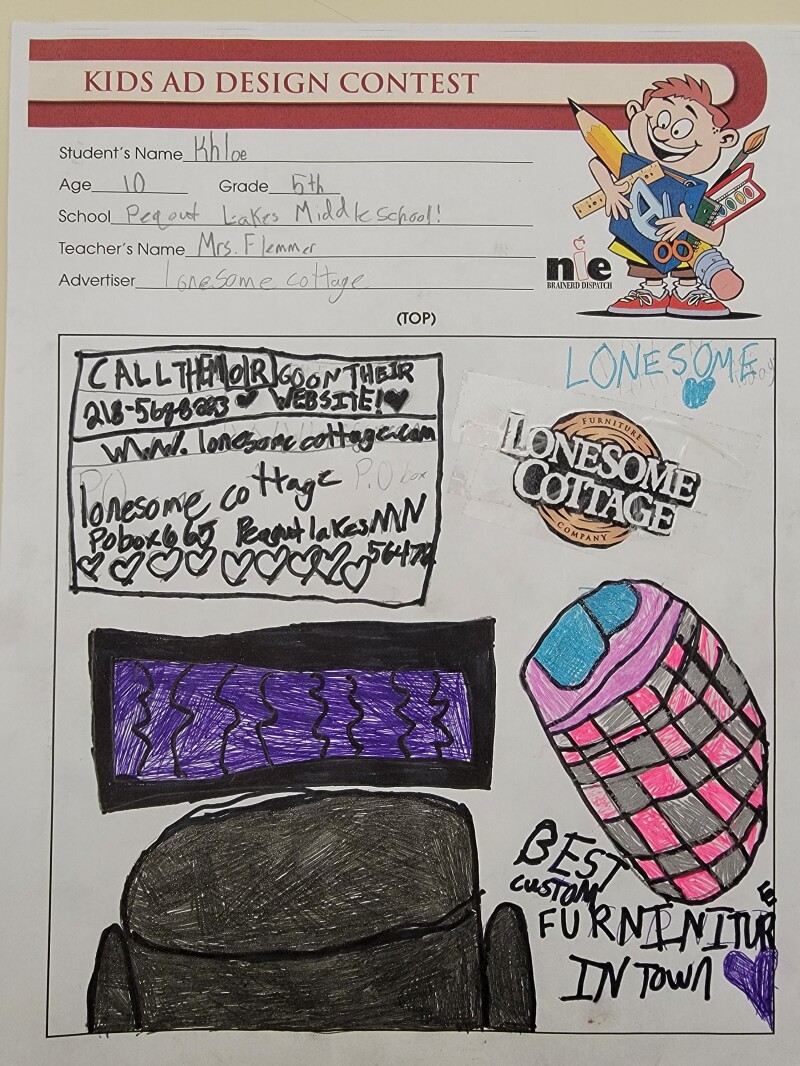 KIDS AD DESIGN CONTEST
Student's Name Khloe
Age 10 Grade 5th
School Peqout Lakes Middle School!
Teacher's Name Mrs. Flemmer
Advertiser lonesome cottage
nie
BRAINERD DISPATCH
(TOP)
CALL THEM OR GO ON THEIR
218-568-8223 WEBSITE!
www.lonesomecottage.com
lonesome cottage
P.O box
Po box 665 Peqout lakes MN
56472
LONESOME
FURNITURE
LONESOME
COTTAGE
COMPANY
BEST
CUSTOM
FURNINITURE
IN TOWN